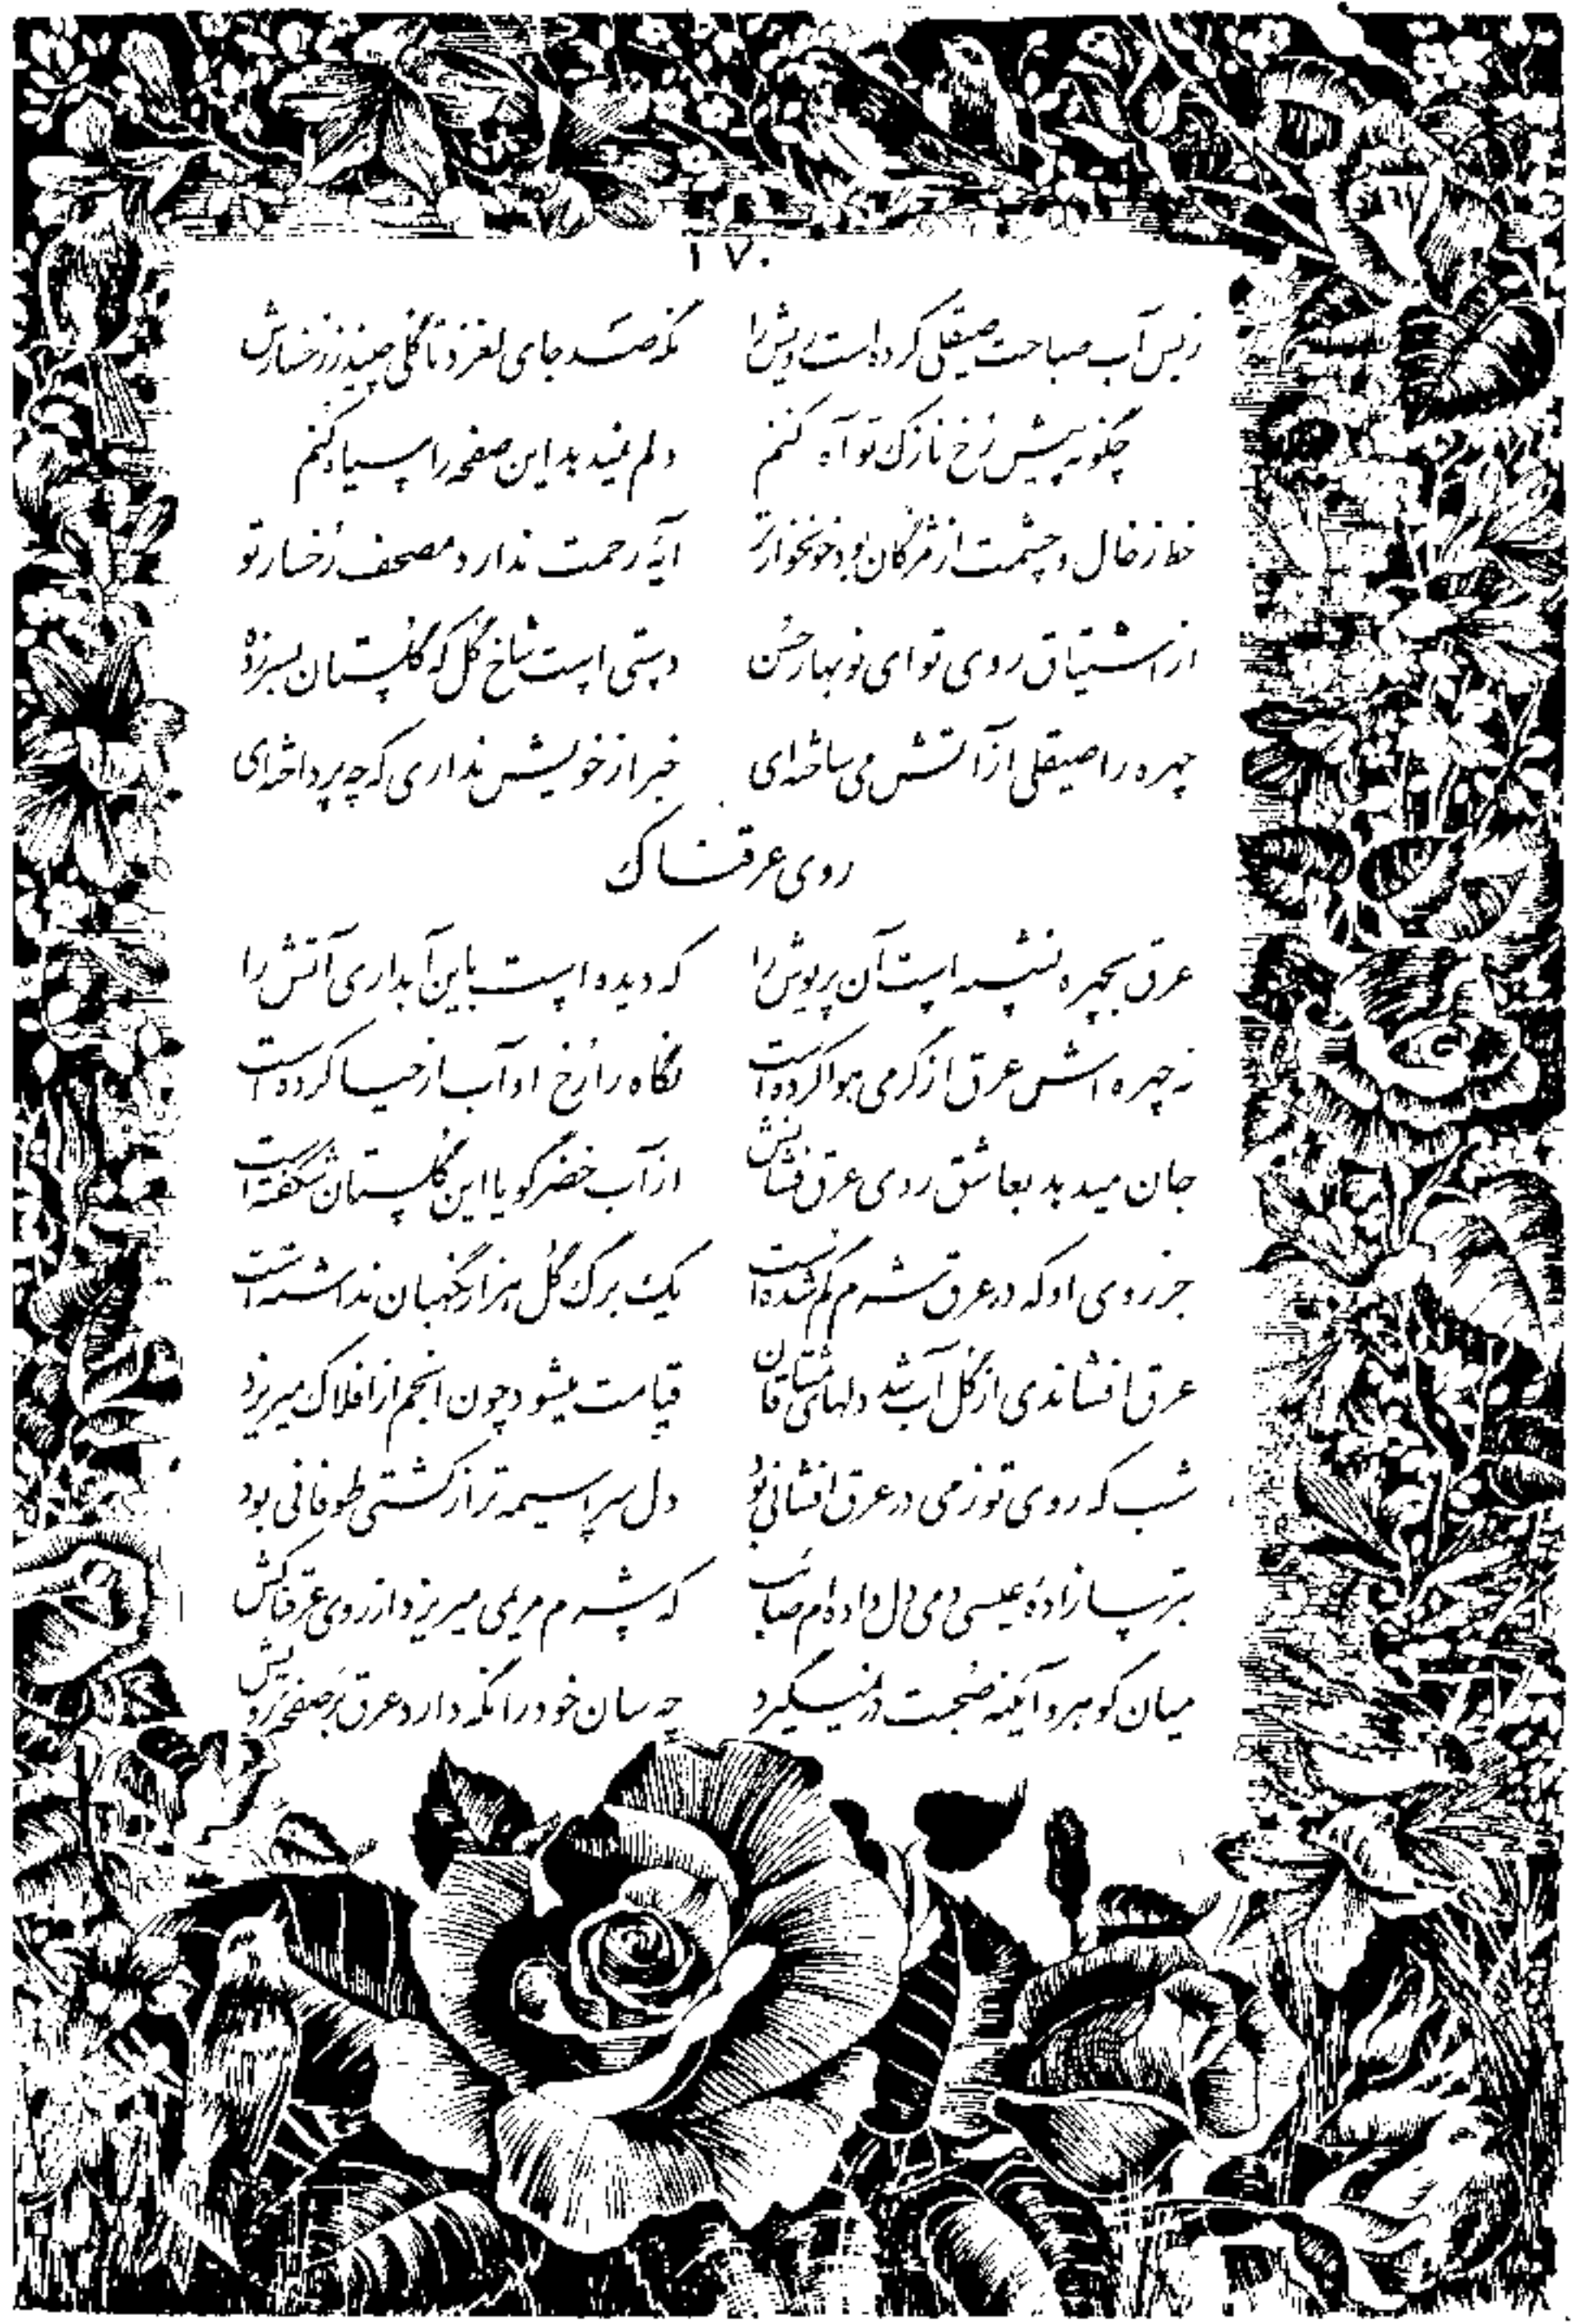 ۱۷۰
زبس آب صباحت صیقلی کرده است رویش را نگه صد جای لغزد تا گلی چیند ز رخسارش
چگونه پیش رُخ نازک تو آه کنم دلم نمیدهد این صفحه را سیاه کنم
خط ز خال و چشمت از مژگان بود خونخوارتر آیهٔ رحمت ندارد مصحف رُخسار تو
از اشتیاق روی تو ای نوبهار حُسن دستی است شاخ گُل که گلستان بسر زده
چهره را صیقلی از آتش می ساخته‌ای خبر از خویش نداری که چه پرداخته‌ای
روی عرقناک
عرق بچهره نشسته است آن پریوش را که دیده است باین آبداری آتش را
نه چهره‌اش عرق از گرمی هوا کرده است نگاه را رُخ او آب از حیا کرده است
جان میدهد بعاشق روی عرق فشانش از آب خضر گویا این گلستان شکفته است
جز روی او که در عرق شرم گم شده است یک برگ گُل هزار نگهبان نداشته است
عرق افشاندی از گل آب شد دلهای مشتاقان قیامت میشود چون انجم از افلاک میریزد
شب که روی تو ز می در عرق افشانی بود دل سراسیمه تر از کشتی طوفانی بود
بترسا زادهٔ عیسی دمی دل داده‌ام صائب که شرم مریمی میریزد از روی عرقناکش
میان گوهر و آینه صُحبت در نمیگیرد چه سان خود را نگه دارد عرق بَر صفحه رویش